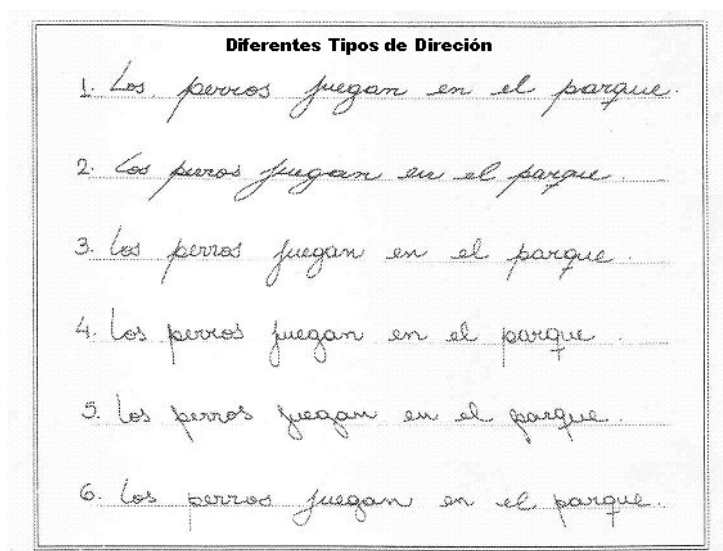 Diferentes Tipos de Direción
1. Los perros juegan en el parque.
2. Los perros juegan en el parque.
3. Los perros juegan en el parque.
4. Los perros juegan en el parque.
5. Los perros juegan en el parque.
6. Los perros juegan en el parque.